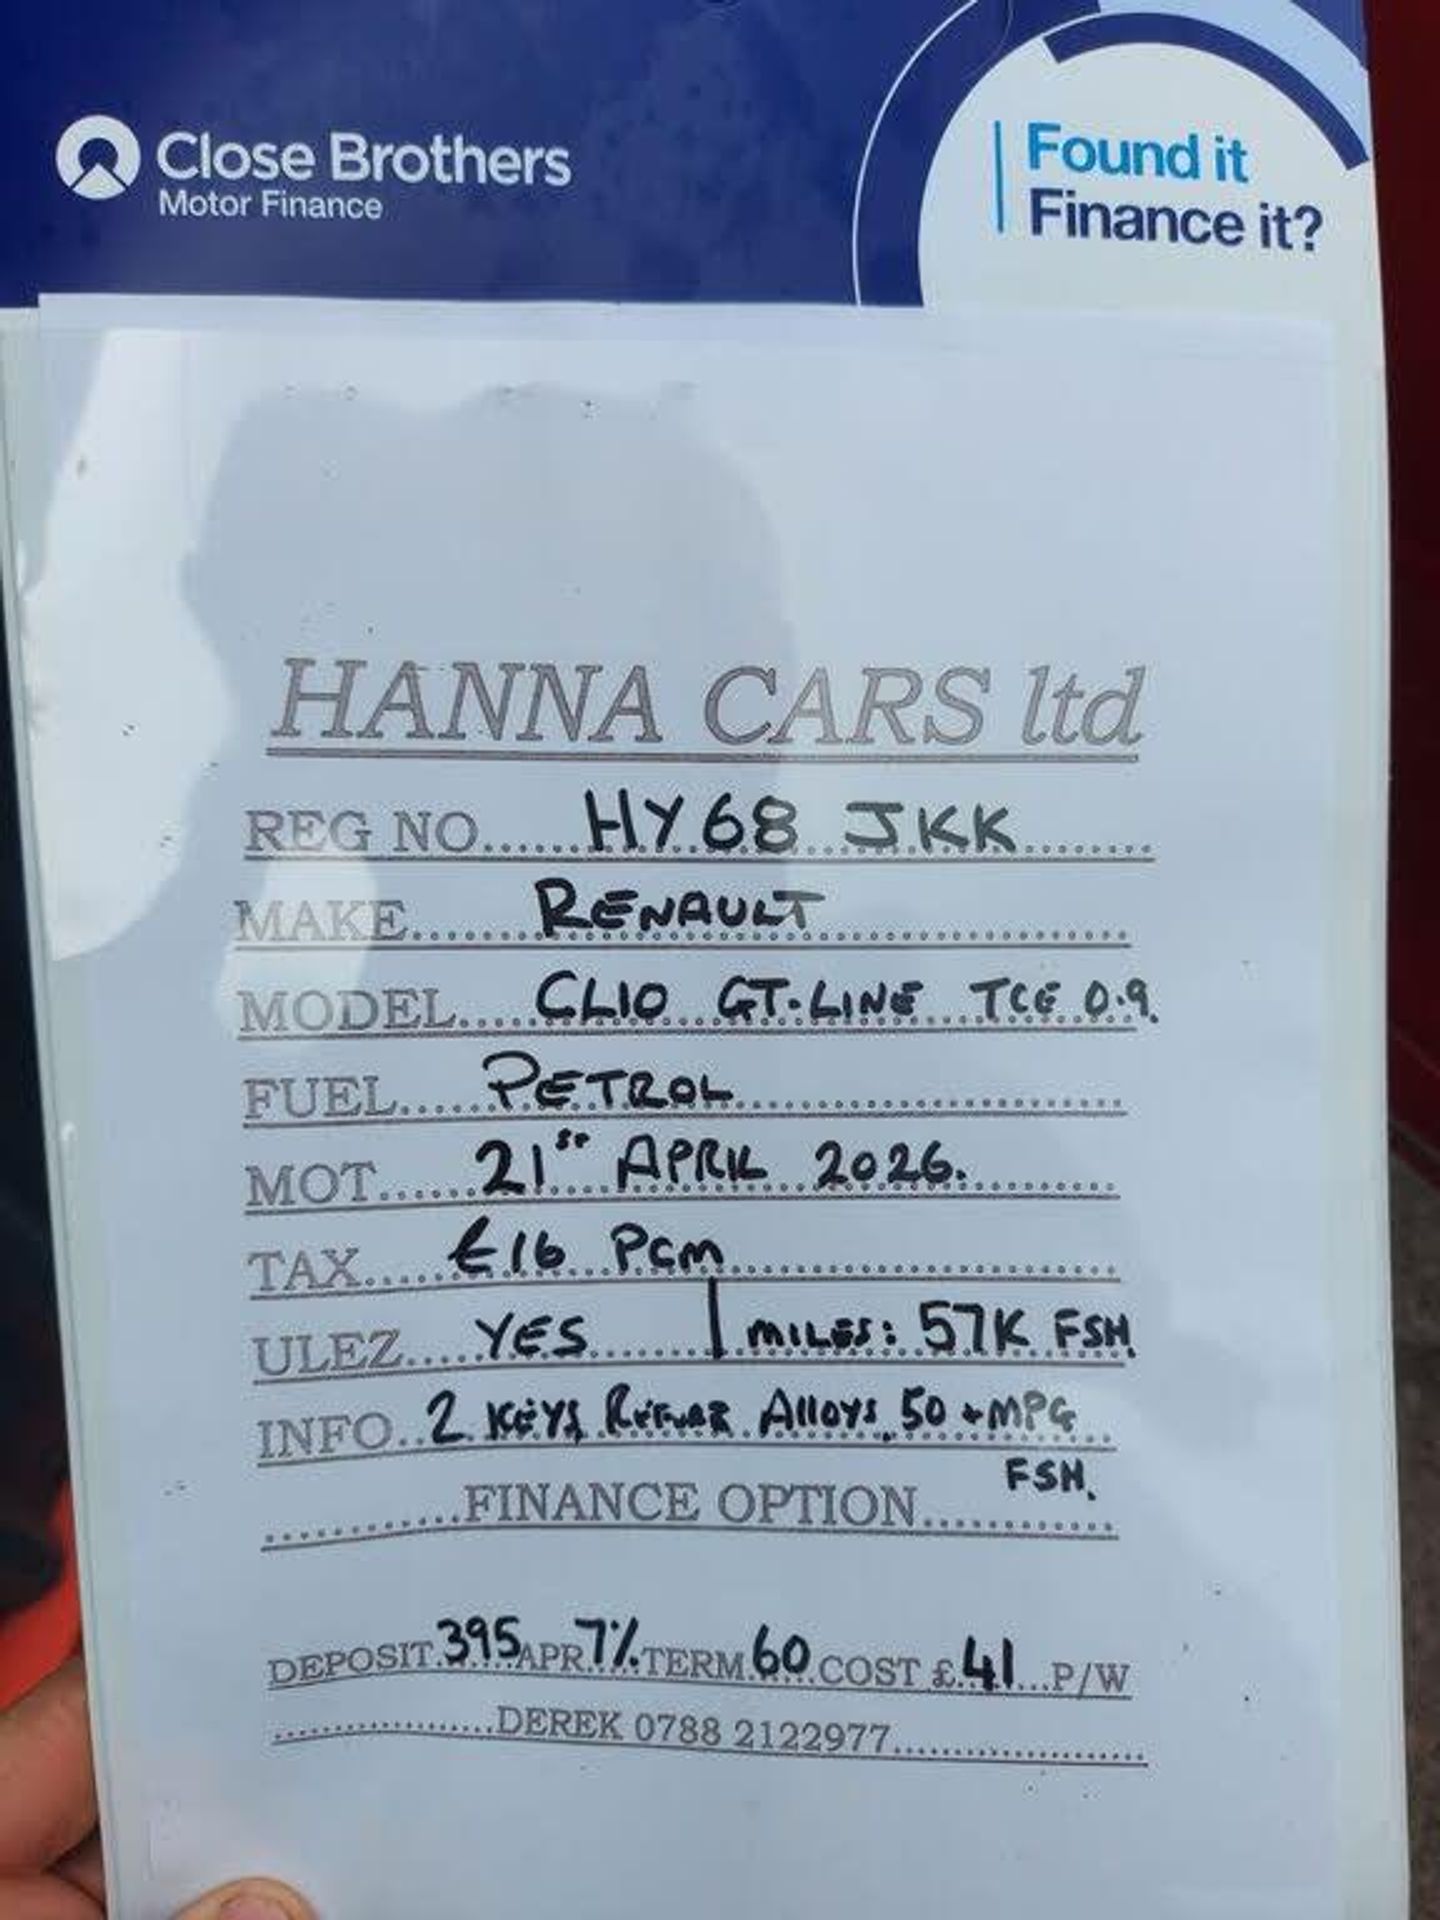 Close Brothers
Motor Finance
Found it
Finance it?
HANNA CARS ltd
REG NO...... HY68 JKK
MAKE...... RENAULT
MODEL...... CLIO GT-LINE TCE 0.9.
FUEL...... PETROL
MOT...... 21ST APRIL 2026.
TAX...... £16 PCM
ULEZ...... YES | MILES: 57K FSH.
INFO.. 2 KEYS, Alloys, 50+MPG
FSH.
...........FINANCE OPTION............
DEPOSIT.395 APR.7%.TERM.60.COST £.41...P/W
..................DEREK 0788 2122977....................